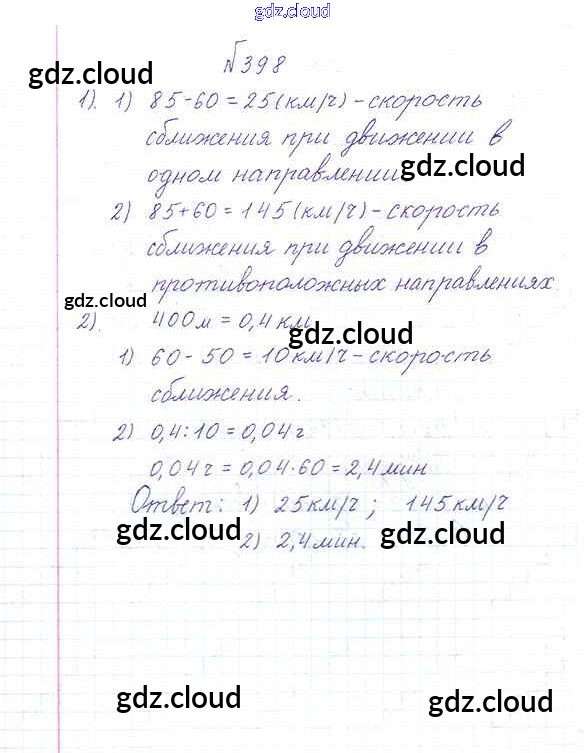 gdz.cloud
№398
gdz.cloud
1). 1) 85-60=25(км/ч)-скорость
сближения при движении в
одном направлении gdz.cloud
2) 85+60=145(км/ч)-скорость
сближения при движении в
противоположных направлениях
gdz.cloud
2). 400м=0,4км
gdz.cloud
1) 60-50=10км/ч-скорость
сближения.
2) 0,4:10=0,04ч
0,04ч=0,04·60=2,4мин
Ответ: 1) 25км/ч; 145км/ч
gdz.cloud 2) 2,4мин. gdz.cloud
gdz.cloud gdz.cloud